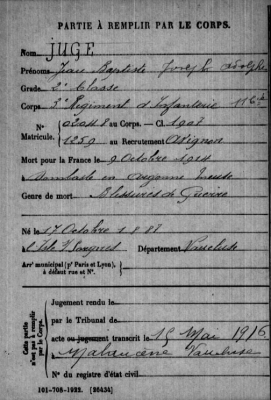 PARTIE À REMPLIR PAR LE CORPS.
Nom JUGE
Prénoms Jean Baptiste Joseph Adolphe
Grade 2e Classe
Corps 3e Régiment d'Infanterie 116e
N° 02048 au Corps. — Cl. 1907
Matricule. 1259 au Recrutement Avignon
Mort pour la France le 9 Octobre 1914
à en Argonne Meuse
Genre de mort Blessures de Guerre
Né le 17 Octobre 1887
à L'Isle Département Vaucluse
Arrt municipal (pr Paris et Lyon), à défaut rue et N°.
Cette partie n'est pas à remplir par le Corps.
Jugement rendu le
par le Tribunal de
acte ou jugement transcrit le 15 Mai 1916
à Malaucène Vaucluse
N° du registre d'état civil
101-708-1922. [26434]